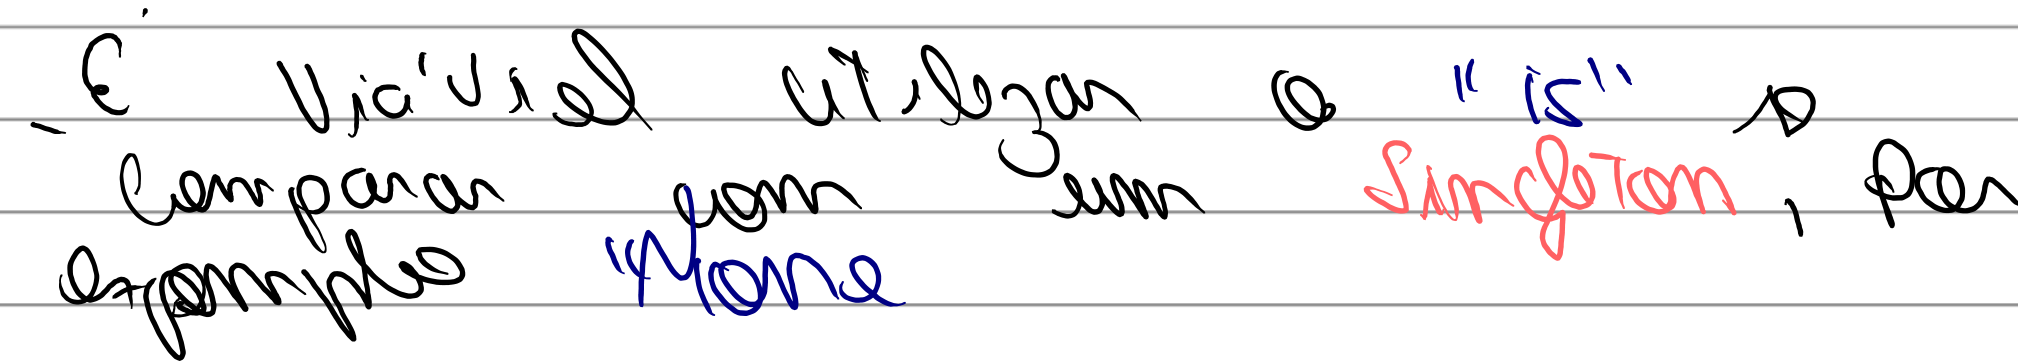 - É viável utilizar o "is" p
comparar com um Singleton, por
exemplo "None